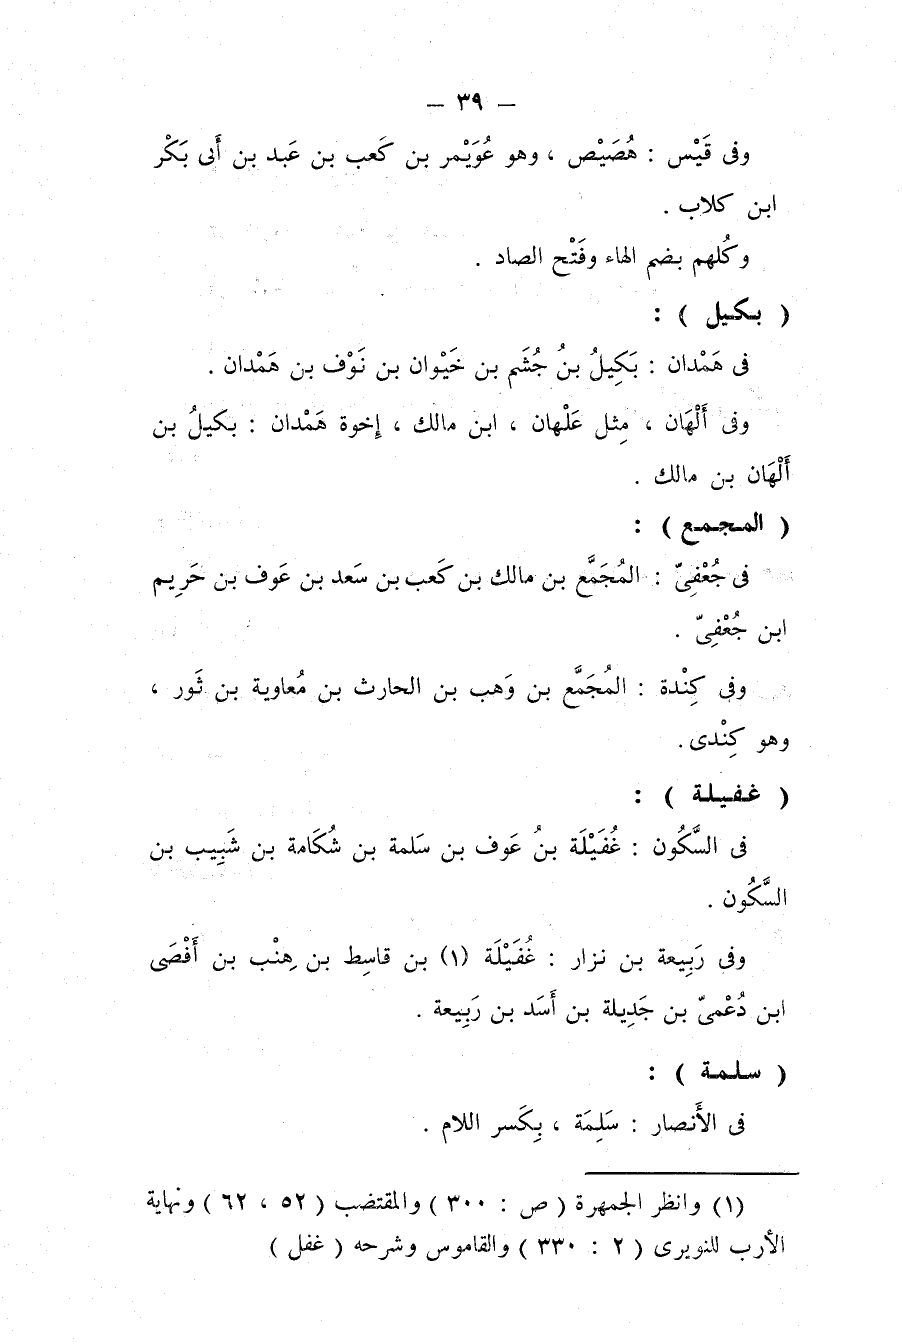 — ٣٩ —
وفى قَيْس : هُصَيْص ، وهو عُوَيْمر بن كَعب بن عَبد بن أَبى بَكْر
ابن كلاب .
وكُلهم بضم الهاء وفَتْح الصاد .
( بكيل ) :
فى هَمْدان : بَكِيلُ بنُ جُشَم بن خَيْوان بن نَوْف بن هَمْدان .
وفى أَلْهَان ، مِثل عَلْهان ، ابن مالك ، إخوة هَمْدان : بكيلُ بن
أَلْهَان بن مالك .
( المجمع ) :
فى جُعْفِىّ : المُجَمَّع بن مالك بن كَعب بن سَعد بن عَوف بن حَرِيم
ابن جُعْفِىّ .
وفى كِنْدة : المُجَمَّع بن وَهب بن الحارث بن مُعاوية بن ثَور ،
وهو كِنْدى .
( غفيلة ) :
فى السَّكُون : غُفَيْلَة بنُ عَوف بن سَلمة بن شُكَامة بن شَبِيب بن
السَّكُون .
وفى رَبِيعة بن نزار : غُفَيْلَة (١) بن قاسِط بن هِنْب بن أَفْصَى
ابن دُعْمىّ بن جَدِيلة بن أَسَد بن رَبِيعة .
( سلمة ) :
فى الأَنصار : سَلِمَة ، بِكَسر اللام .
(١) وانظر الجمهرة ( ص : ٣٠٠ ) والمقتضب ( ٥٢ ، ٦٢ ) ونهاية
الأرب للنويرى ( ٢ : ٣٣٠ ) والقاموس وشرحه ( غفل )